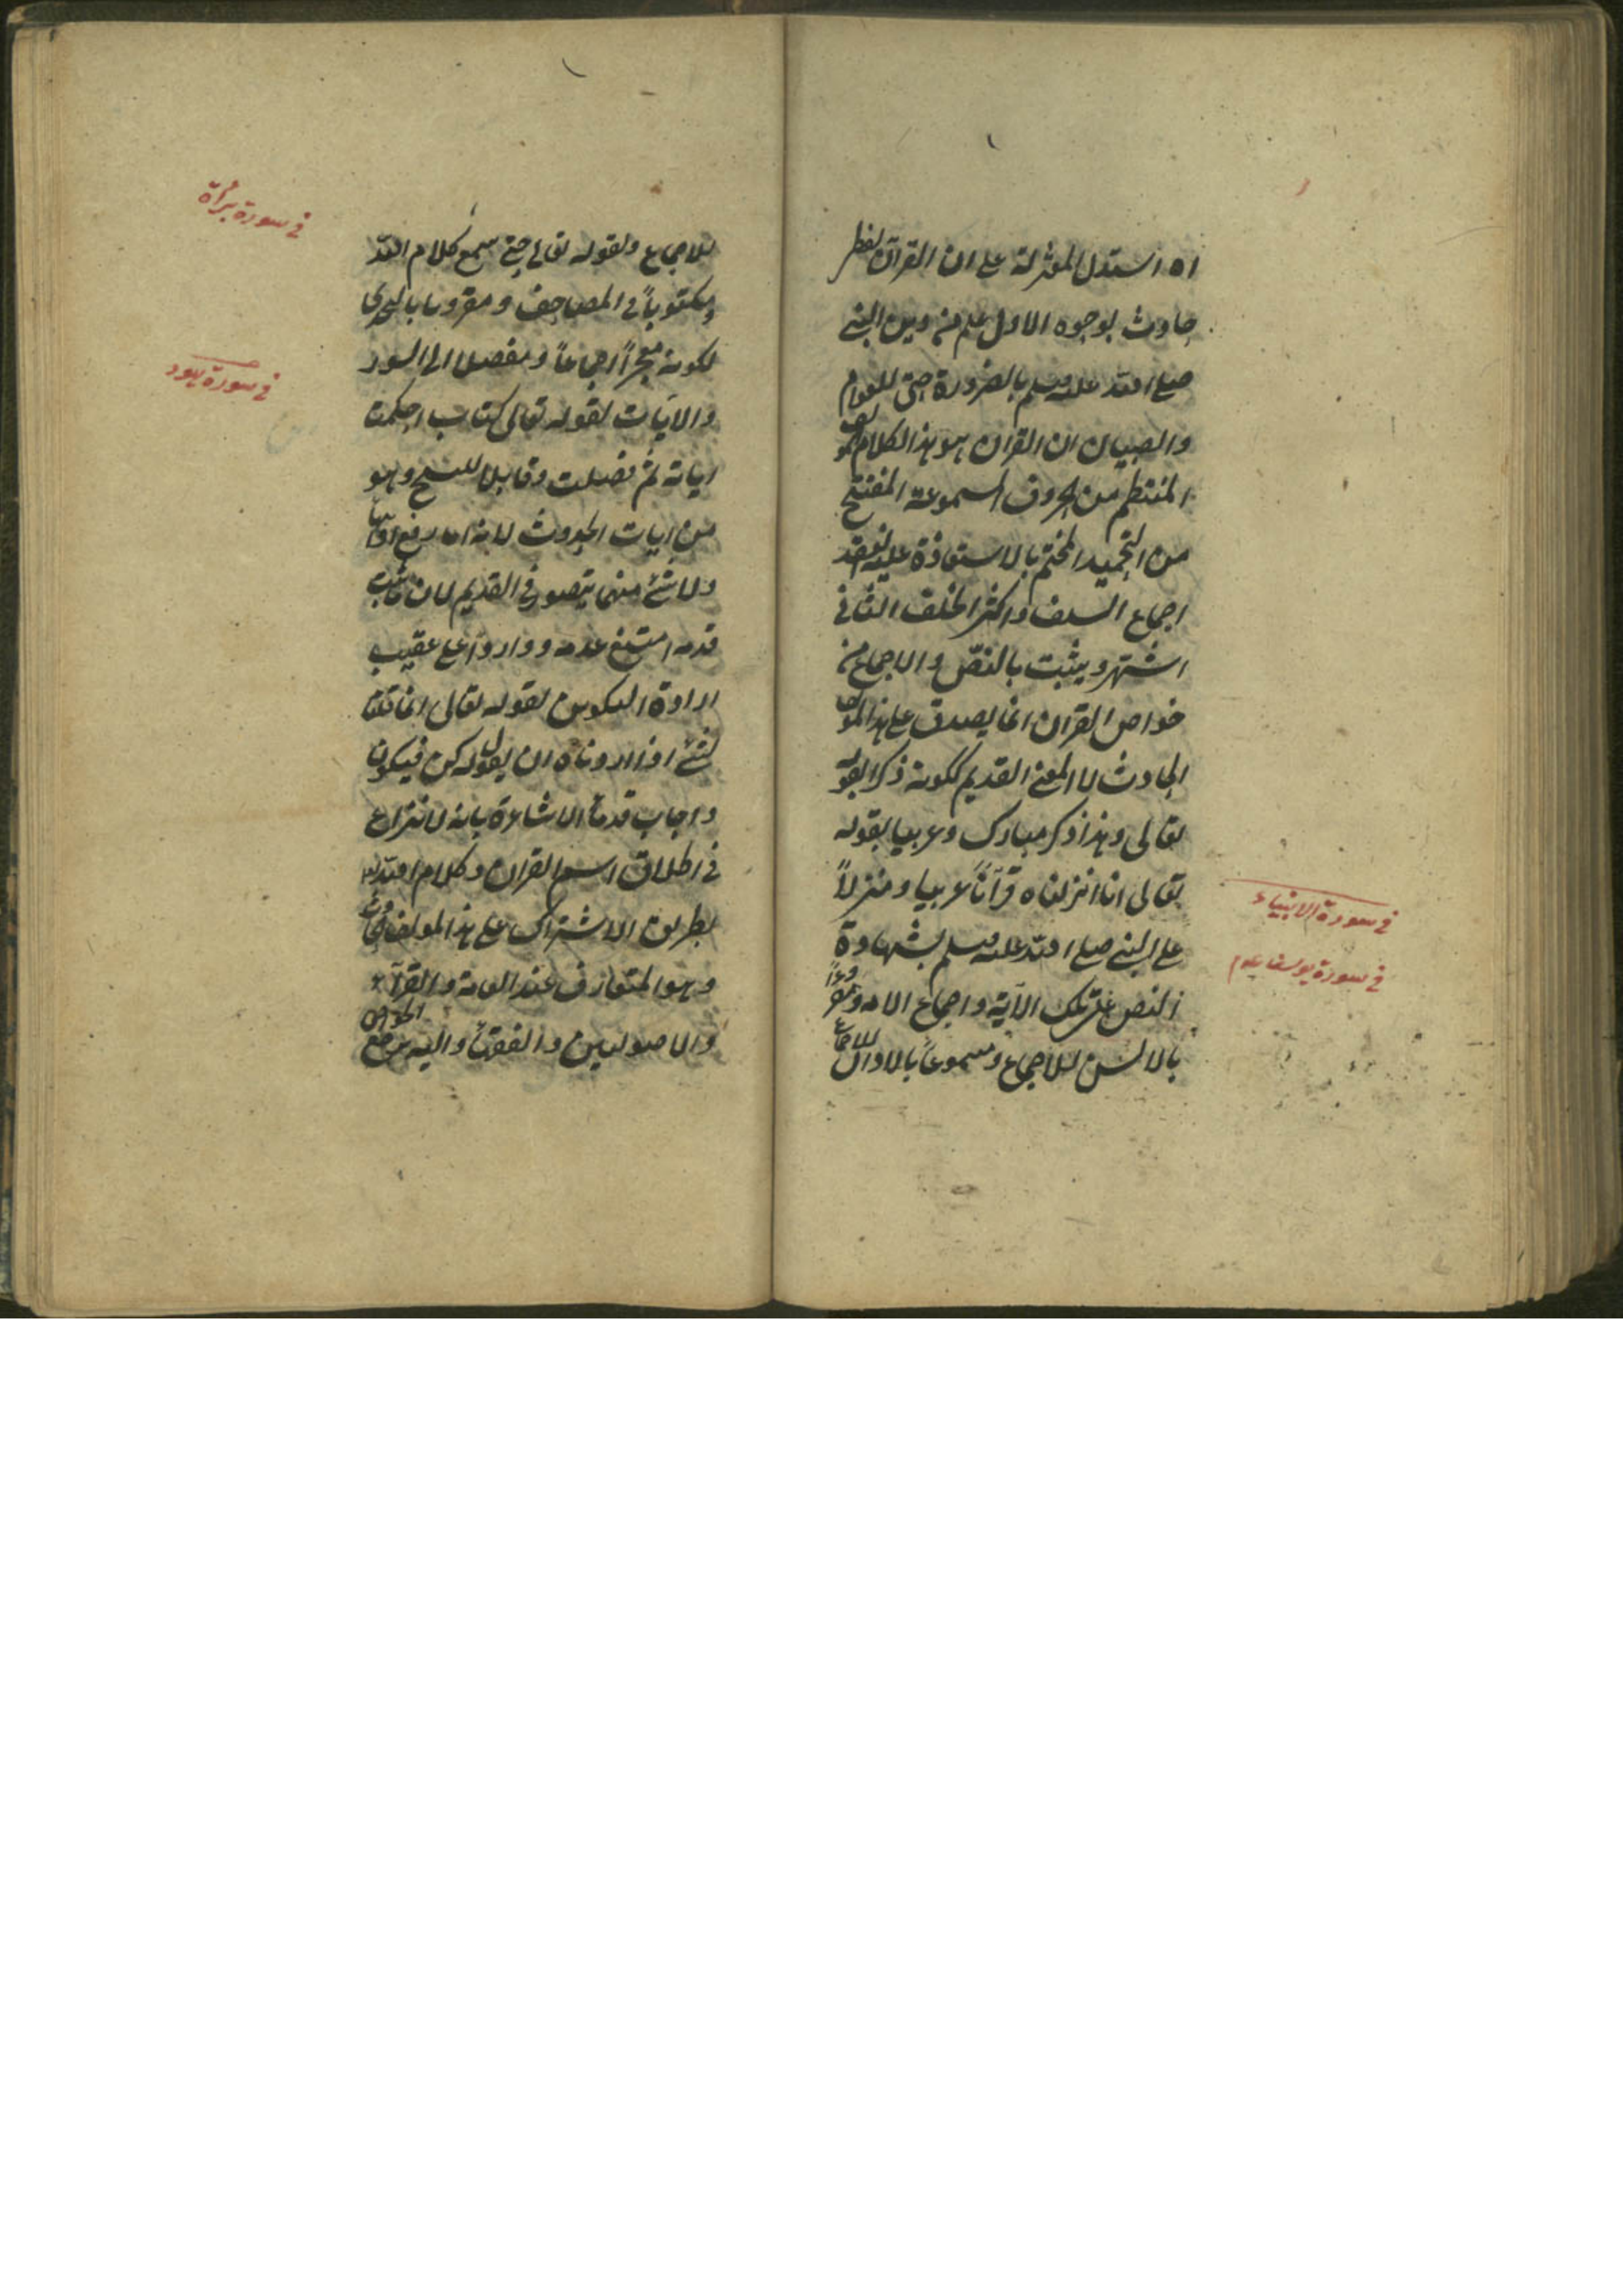 اه استدل المعتزلة على ان القرآن لفظ
حادث بوجوه الاول علم من دين النبي
صلى الله عليه وسلم بالضرورة حتى للعوام
والصبيان ان القران هو هذا الكلام
المنتظم من الحروف المسموعة المفتتح
من التحميد المختم بالاستعاذة عليه انعقد
اجماع السلف واكثر الخلف الثاني
اشتهر ويثبت بالنصّ والاجماع من
خواص القران انما يصدق على هذا المؤلف
الحادث لا المعنى القديم ككونه ذكرا لقوله
تعالى وهذا ذكر مبارك وعربيا لقوله
تعالى انا انزلناه قرآناً عربيا ومنزلاً
على النبي صلى الله عليه وسلم بشهادة
النص على تلك الآية واجماع الامة ومقروءاً
بالالسن للاجماع ومسموعاً بالاذان
للاجماع
في سورة الانبياء
في سورة يوسف
للاجماع ولقوله تعالى حتى يسمع كلام الله
ومكتوباً في المصاحف ومقرونا بالتحدى
لكونه معجزاً اجماعاً ومفصلا الى السور
والآيات لقوله تعالى كتاب احكمت
اياته ثم فصلت وقابلا للنسخ وهو
من ايات الحدوث لانه اما رفع او انتهاء
ولا شئ منهما يتصور في القديم لان ما ثبت
قدمه امتنع عدمه وواردا على عقيب
ارادة التكوين لقوله تعالى انما قولنا
لشئ اذا اردناه ان يقول له كن فيكون
واجاب قدماء الاشاعرة بانه لا نزاع
في اطلاق اسم القران وكلام الله
بطريق الاشتراك على هذا المؤلف الحادث
وهو المتعارف عند العامة والقرآء
والاصوليين والفقهاء واليه يرجع
الخواص
في سورة برأة
في سورة هود